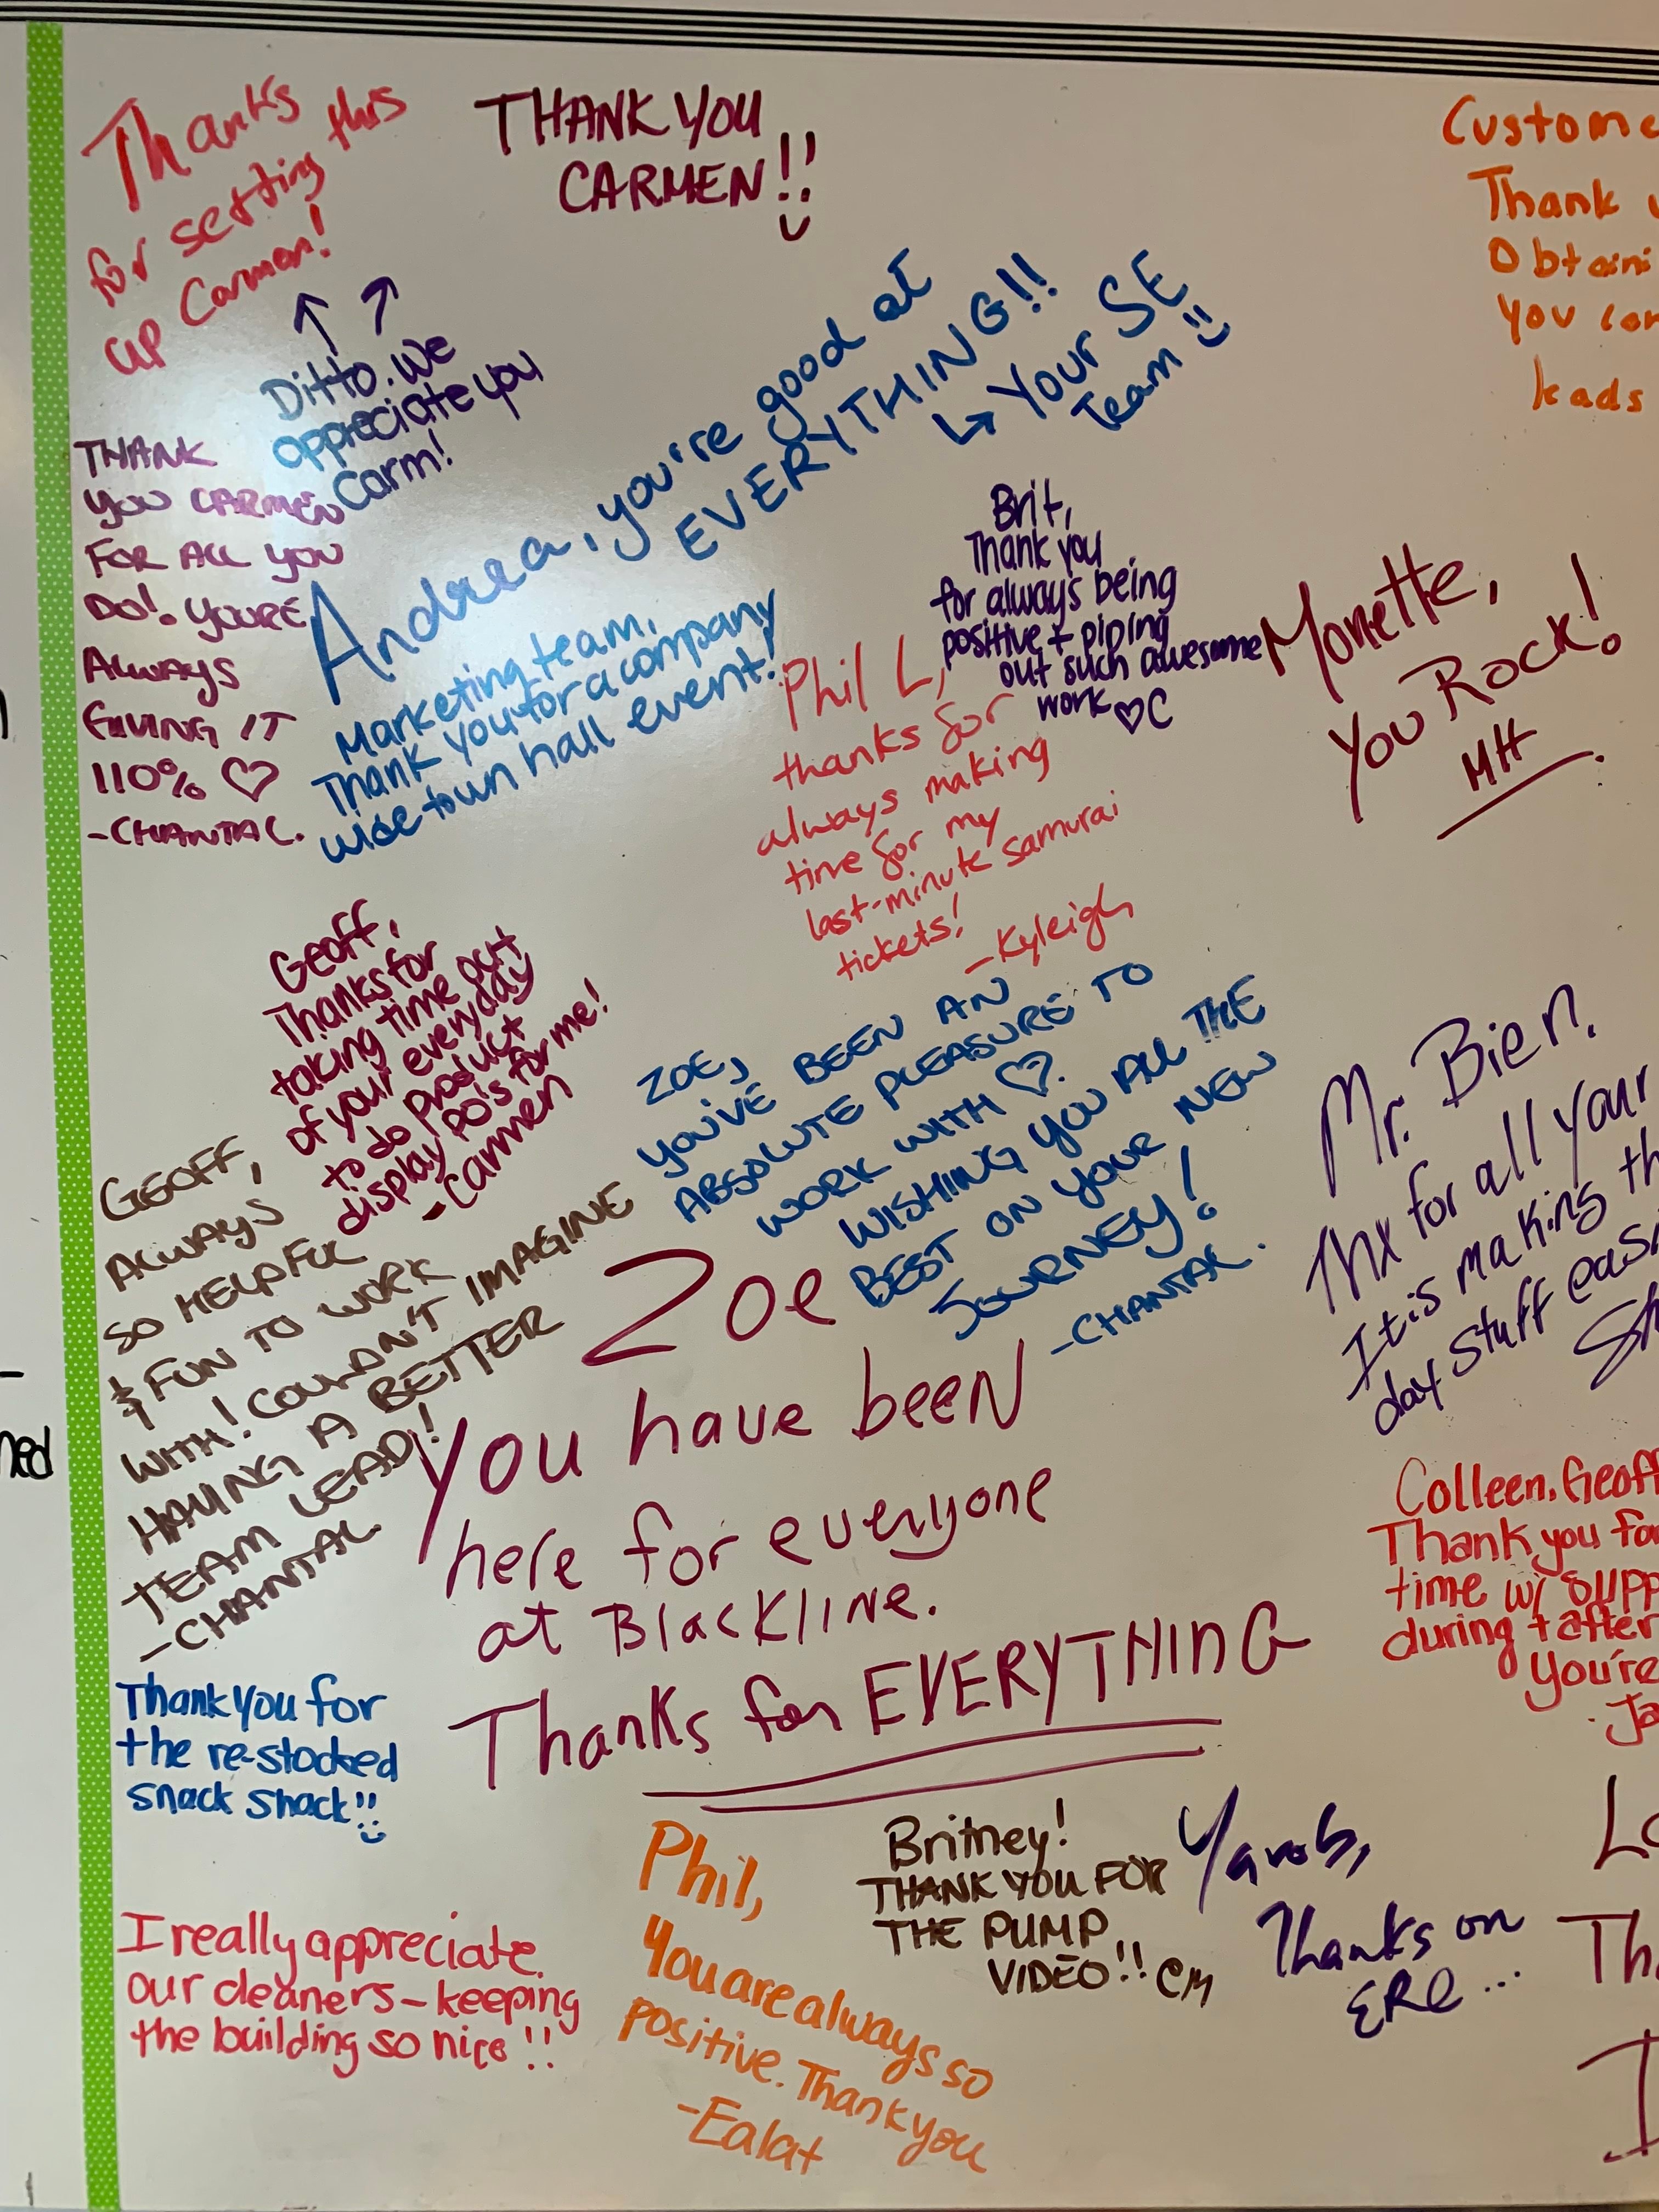 Thanks
for setting this
up Carmen!
THANK YOU
CARMEN!!
Ditto. We
appreciate you
Carm!
THANK
YOU CARMEN
FOR ALL YOU
DO! YOU'RE
ALWAYS
GIVING IT
110% ♡
-CHANTAL.
Andrea, you're good at
EVERYTHING!!
↳ Your SE
Team
Marketing team,
Thank you for a company
wide town hall event!
Brit,
Thank you
for always being
positive + piping
out such awesome
work ♡C
Phil L,
thanks for
always making
time for my
last-minute samurai
tickets!
-Kyleigh
Monette,
You Rock!
MH
Custome
Thank
Obtaini
you
leads
Geoff,
Thanks for
taking time out
of your everyday
to do product
display po's for me!
-Carmen
GEOFF,
ALWAYS
SO HELPFUL
& FUN TO WORK
WITH! COULDN'T IMAGINE
HAVING A BETTER
TEAM LEAD!
-CHANTAL
ZOE,
YOU'VE BEEN AN
ABSOLUTE PLEASURE TO
WORK WITH ♡.
WISHING YOU ALL THE
BEST ON YOUR NEW
JOURNEY!
-CHANTAL.
Zoe
You have been
here for everyone
at Blackline.
Thanks for EVERYTHING
Mr. Bien.
Thx for all your
It is making th
day stuff easi
Sh
Colleen, Geoff
Thank you for
time w/ supp
during + after
You're
Ja
Thank you for
the re-stocked
snack shack!!
I really appreciate
our cleaners - keeping
the building so nice!!
Phil,
You are always so
positive. Thank you
-Ealat
Britney!
THANK YOU FOR
THE PUMP
VIDEO!! CM
Yarob,
Thanks on
ERP...
Lo
Th
I
ned